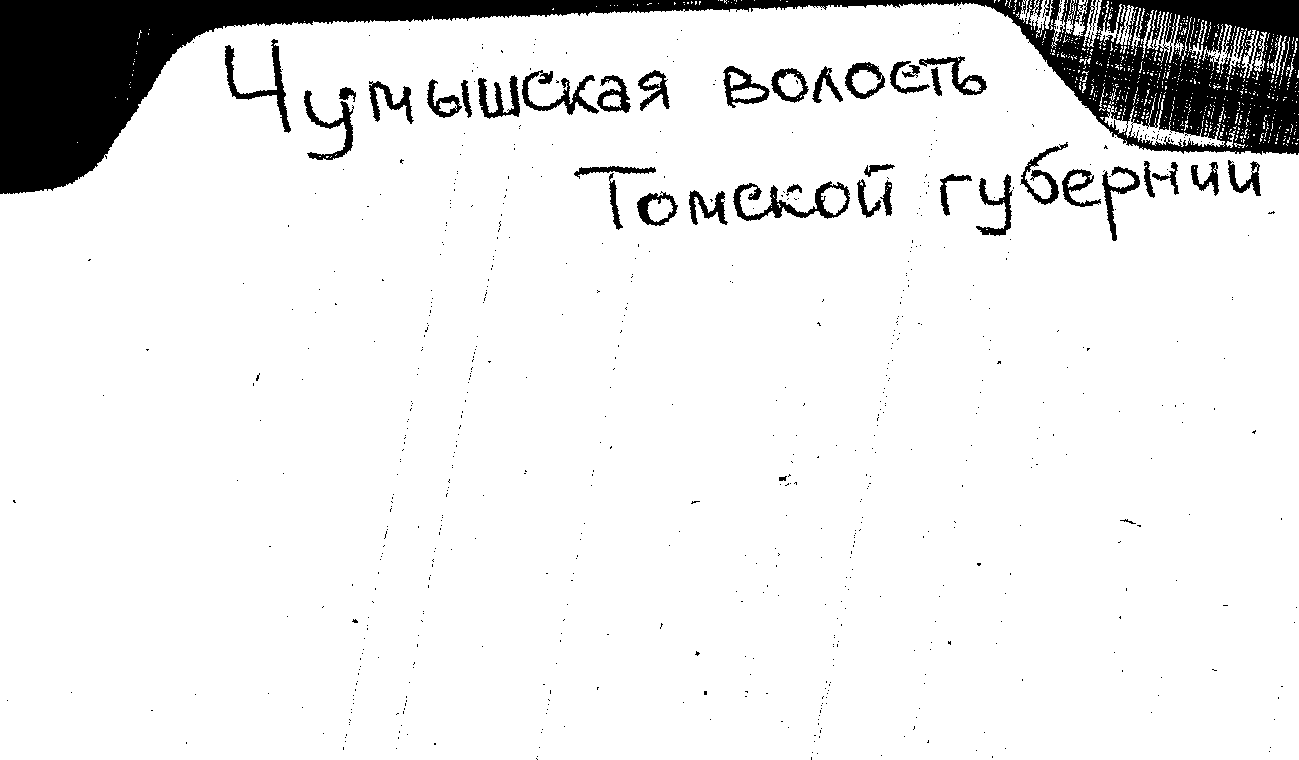 Чумышская волость
Томской губернии